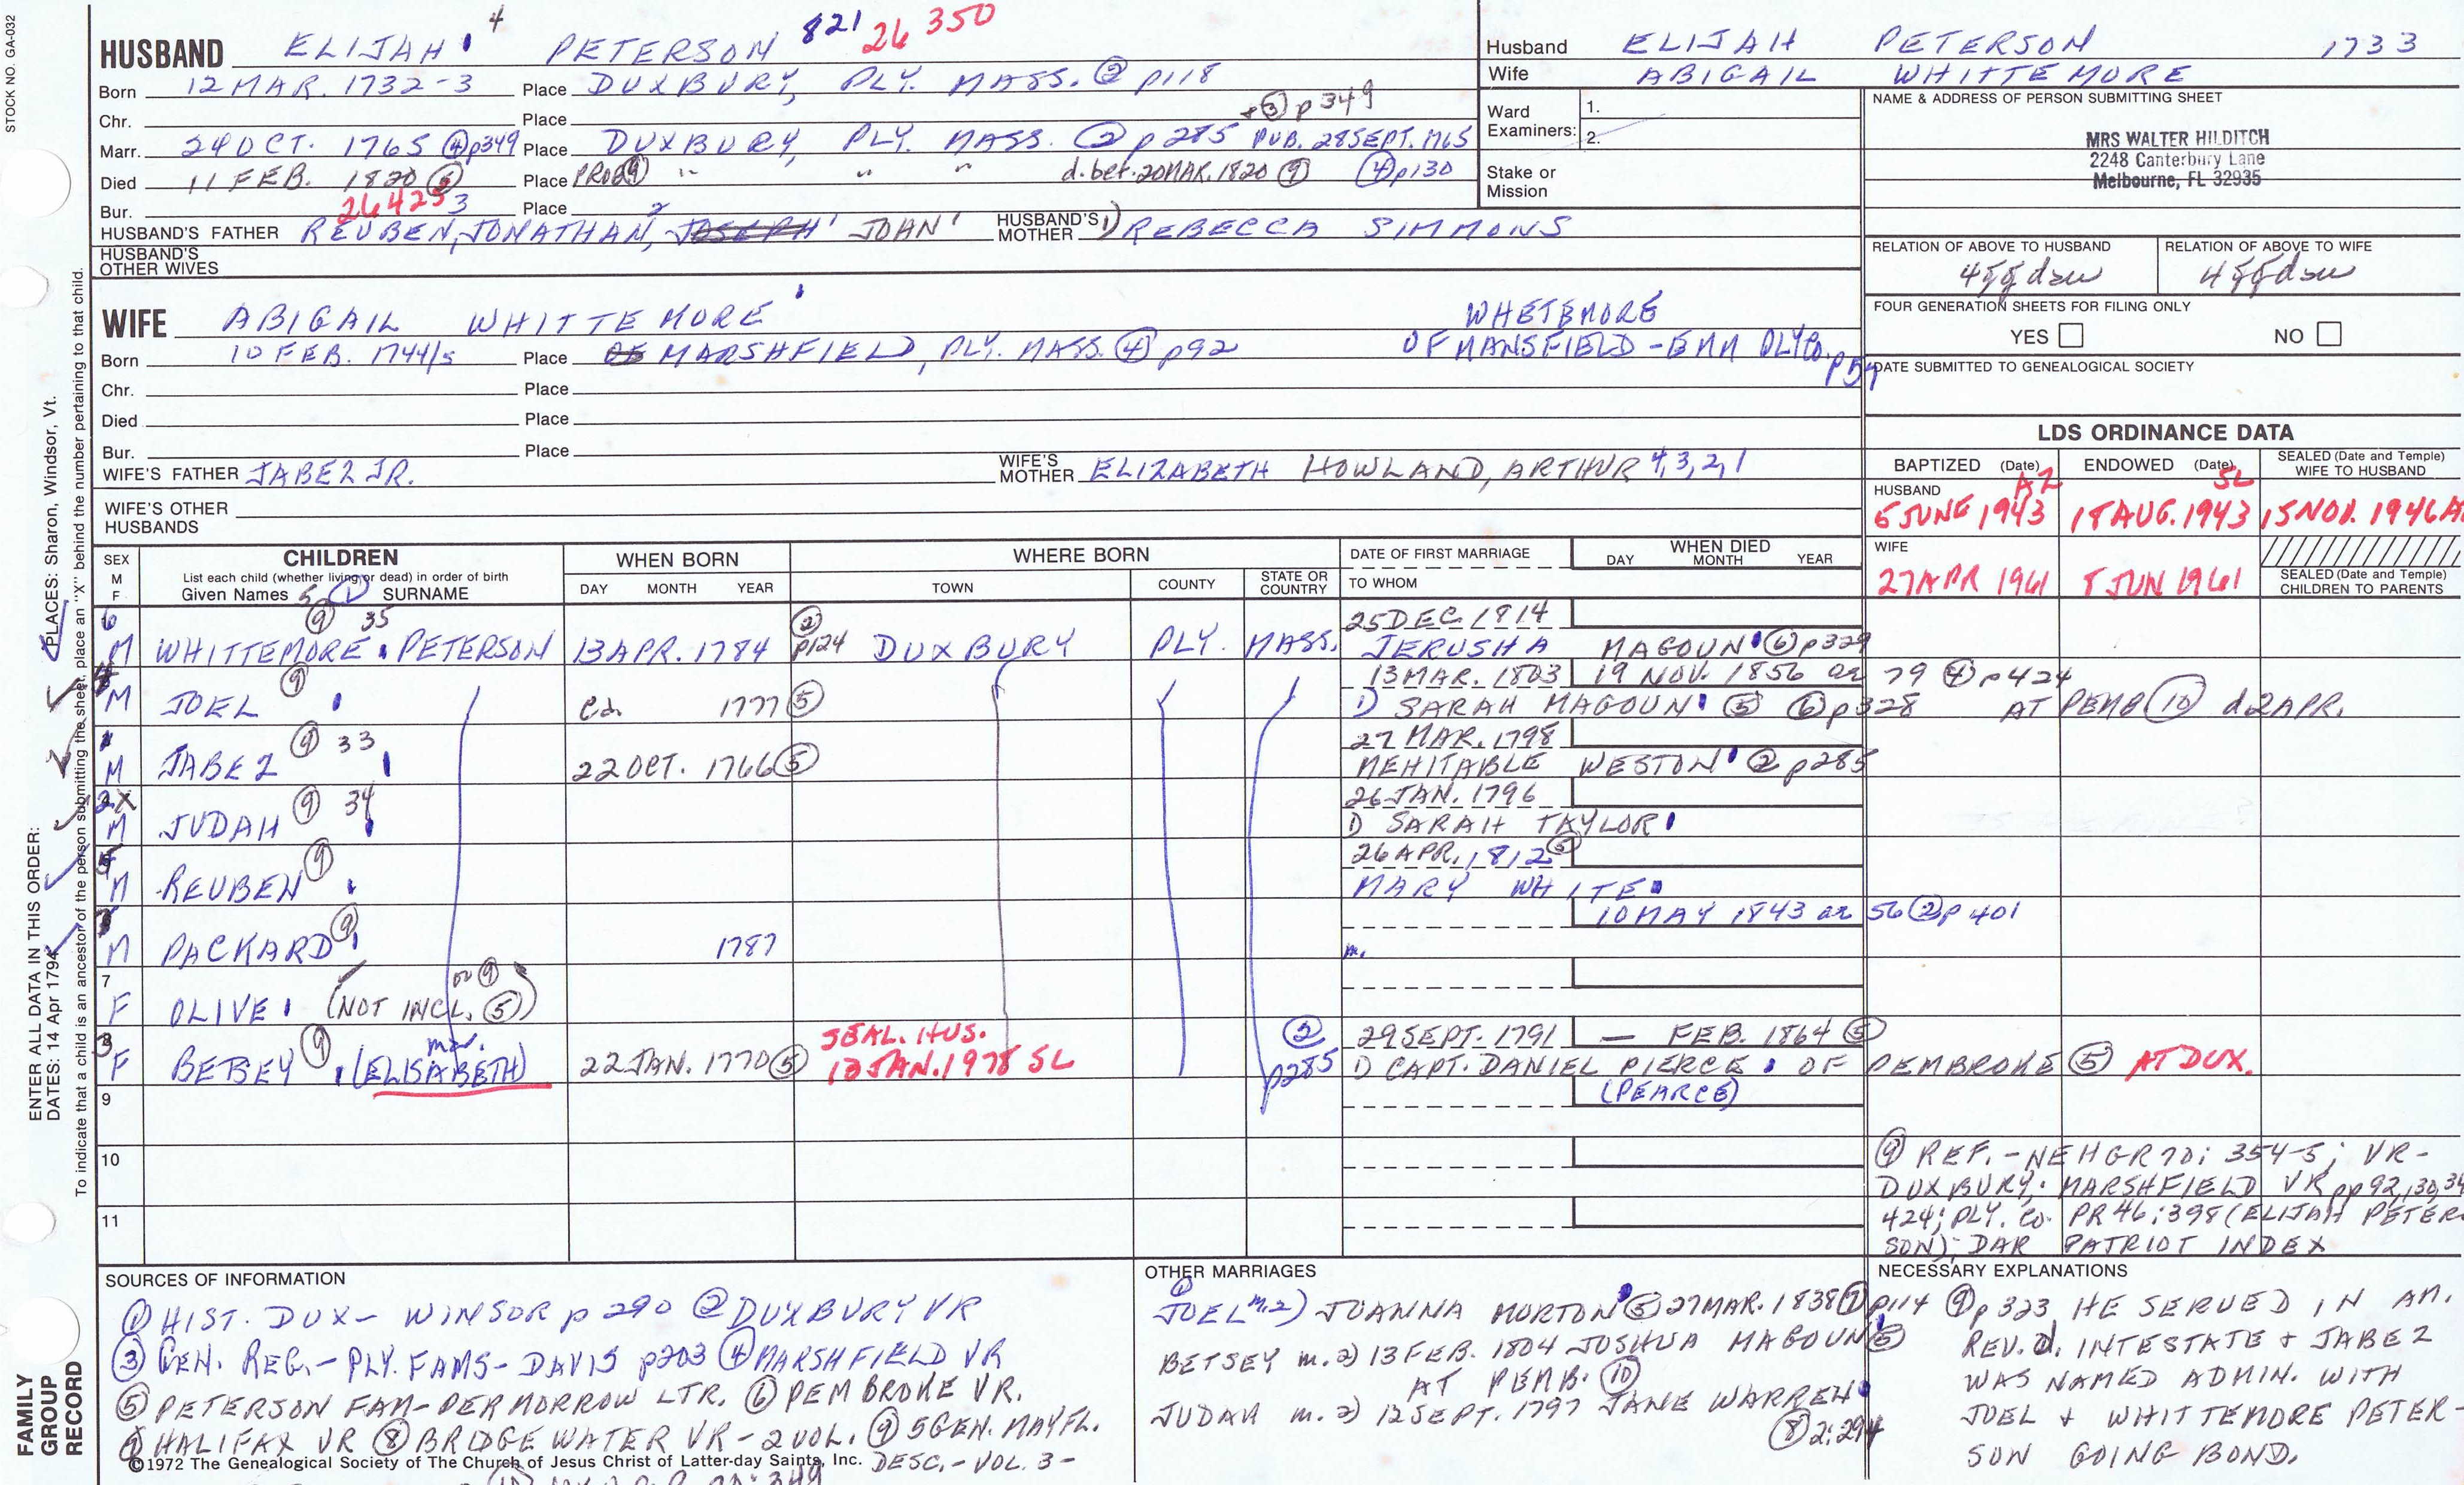 STOCK NO. GA-032
HUSBAND ELIJAH 4 PETERSON 821 26 350
Born 12 MAR. 1732-3 Place DUXBURY, PLY. MASS. ② p118
Chr. Place + ③ p349
Marr. 24 OCT. 1765 ④ p349 Place DUXBURY, PLY. MASS. ② p285 PUB. 28 SEPT. 1765
Died 11 FEB. 1820 Place PROB ⑨ " " " d. bef. 20 MAR. 1820 ⑨ ④ p130
Bur. 26425 Place
HUSBAND'S FATHER REUBEN, 3 JONATHAN, 2 JOSEPH 1 JOHN 1 HUSBAND'S MOTHER 1) REBECCA SIMMONS
HUSBAND'S OTHER WIVES
WIFE ABIGAIL WHITTEMORE WHETEMORE
Born 10 FEB. 1744/5 Place OF MARSHFIELD, PLY. MASS. ④ p92 OF MANSFIELD - EMM PLY CO. p54
Chr. Place
Died Place
Bur. Place
WIFE'S FATHER JABEZ JR. WIFE'S MOTHER ELIZABETH HOWLAND, ARTHUR 4, 3, 2, 1
WIFE'S OTHER HUSBANDS
Husband ELIJAH PETERSON 1733
Wife ABIGAIL WHITTEMORE
Ward Examiners: 1.
2.
Stake or Mission
NAME & ADDRESS OF PERSON SUBMITTING SHEET
MRS WALTER HILDITCH
2248 Canterbury Lane
Melbourne, FL 32935
RELATION OF ABOVE TO HUSBAND RELATION OF ABOVE TO WIFE
4ggdau 4ggdau
FOUR GENERATION SHEETS FOR FILING ONLY
YES NO
DATE SUBMITTED TO GENEALOGICAL SOCIETY
LDS ORDINANCE DATA
BAPTIZED (Date) ENDOWED (Date) SEALED (Date and Temple) WIFE TO HUSBAND
HUSBAND AZ SL
5 JUNE 1943 18 AUG. 1943 15 NOV. 1946 A
WIFE
27 APR 1961 8 JUN 1961 SEALED (Date and Temple) CHILDREN TO PARENTS
SEX M F CHILDREN WHEN BORN WHERE BORN DATE OF FIRST MARRIAGE WHEN DIED
List each child (whether living or dead) in order of birth DAY MONTH YEAR TOWN COUNTY STATE OR COUNTRY TO WHOM DAY MONTH YEAR
Given Names 5 ① SURNAME
6 ⑨ 35 ② 25 DEC 1814
M WHITTEMORE PETERSON 13 APR. 1784 p124 DUXBURY PLY. MASS. JERUSHA MAGOUN ⑥ p329
4 ⑨ 13 MAR. 1803 19 NOV. 1856 ae 79 ④ p424
M JOEL ca. 1777 ⑤ 1) SARAH MAGOUN ⑤ ⑥ p328 AT PEMB ⑩ d 2 APR.
1 ⑨ 33 27 MAR. 1798
M JABEZ 22 OCT. 1766 ⑤ MEHITABLE WESTON ② p285
2 X ⑨ 34 26 JAN. 1796
M JUDAH 1) SARAH TAYLOR
5 ⑨ 26 APR. 1812 ⑤
M REUBEN MARY WHITE
⑨ 10 MAY 1843 ae 56 ② p401
M PACKARD 1787 m.
7 or ⑨
F OLIVE (NOT INCL. ⑤)
3 ⑨ mar. SEAL. HUS. ② 29 SEPT. 1791 — FEB. 1864 ⑤
F BETSEY (ELISABETH) 22 JAN. 1770 ⑤ 13 JAN. 1978 SL p285 1) CAPT. DANIEL PIERCE OF PEMBROKE ⑤ AT DUX.
9 (PEARCE)
10
11
⑨ REF. - NEHGR 70: 354-5; VR-
DUXBURY; MARSHFIELD VR pp 92, 130, 34
424; PLY. CO. PR 46:398 (ELIJAH PETER-
SON); DAR PATRIOT INDEX
SOURCES OF INFORMATION
① HIST. DUX - WINSOR p 290 ② DUXBURY VR
③ GEN. REG. - PLY. FAMS - DAVIS p203 ④ MARSHFIELD VR
⑤ PETERSON FAM - PER MORROW LTR. ⑥ PEMBROKE VR.
⑦ HALIFAX VR ⑧ BRIDGEWATER VR - 2 VOL. ⑨ 5 GEN. MAYFL.
©1972 The Genealogical Society of The Church of Jesus Christ of Latter-day Saints, Inc. DESC. - VOL. 3 -
OTHER MARRIAGES
JOEL m. 2) JOANNA MORTON ⑤ 27 MAR. 1838 ⑦ p114
BETSEY m. 2) 13 FEB. 1804 JOSHUA MAGOUN ⑤
AT PEMB. ⑩
JUDAH m. 2) 12 SEPT. 1797 JANE WARREN
⑧ 2:294
NECESSARY EXPLANATIONS
⑨ p 323 HE SERVED IN AM.
REV. d. INTESTATE + JABEZ
WAS NAMED ADMIN. WITH
JOEL + WHITTEMORE PETER-
SON GOING BOND.
ENTER ALL DATA IN THIS ORDER:
DATES: 14 Apr 1794 PLACES: Sharon, Windsor, Vt.
To indicate that a child is an ancestor of the person submitting the sheet, place an "X" behind the number pertaining to that child.
FAMILY GROUP RECORD